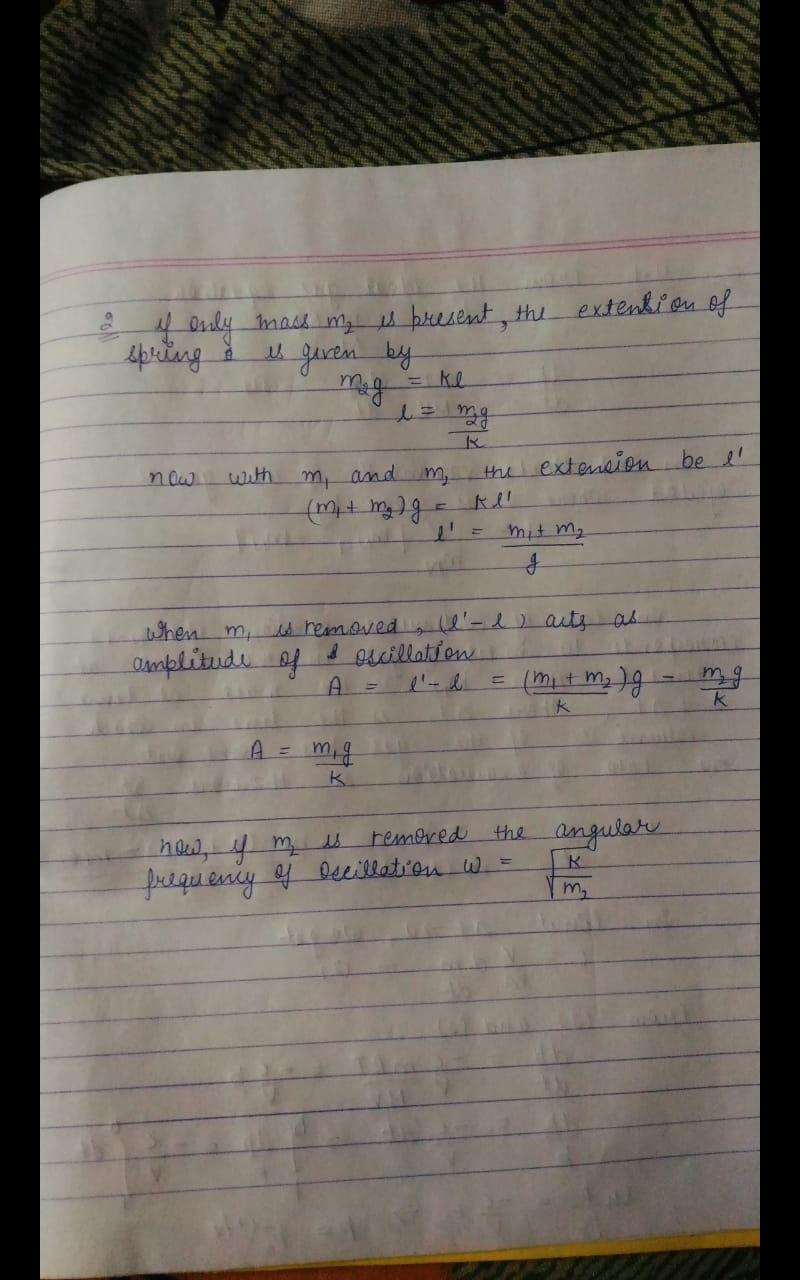 2 if only mass m₂ is present, the extention of
spring is given by
m₂g = kl
l = m₂g/k
now with m₁ and m₂ the extension be l'
(m₁ + m₂)g = kl'
l' = m₁ + m₂/g
when m₁ is removed, (l' - l) acts as
amplitude of oscillation
A = l' - l = (m₁ + m₂)g/k - m₂g/k
A = m₁g/k
now, if m₂ is removed the angular
frequency of oscillation w = √k/m₂